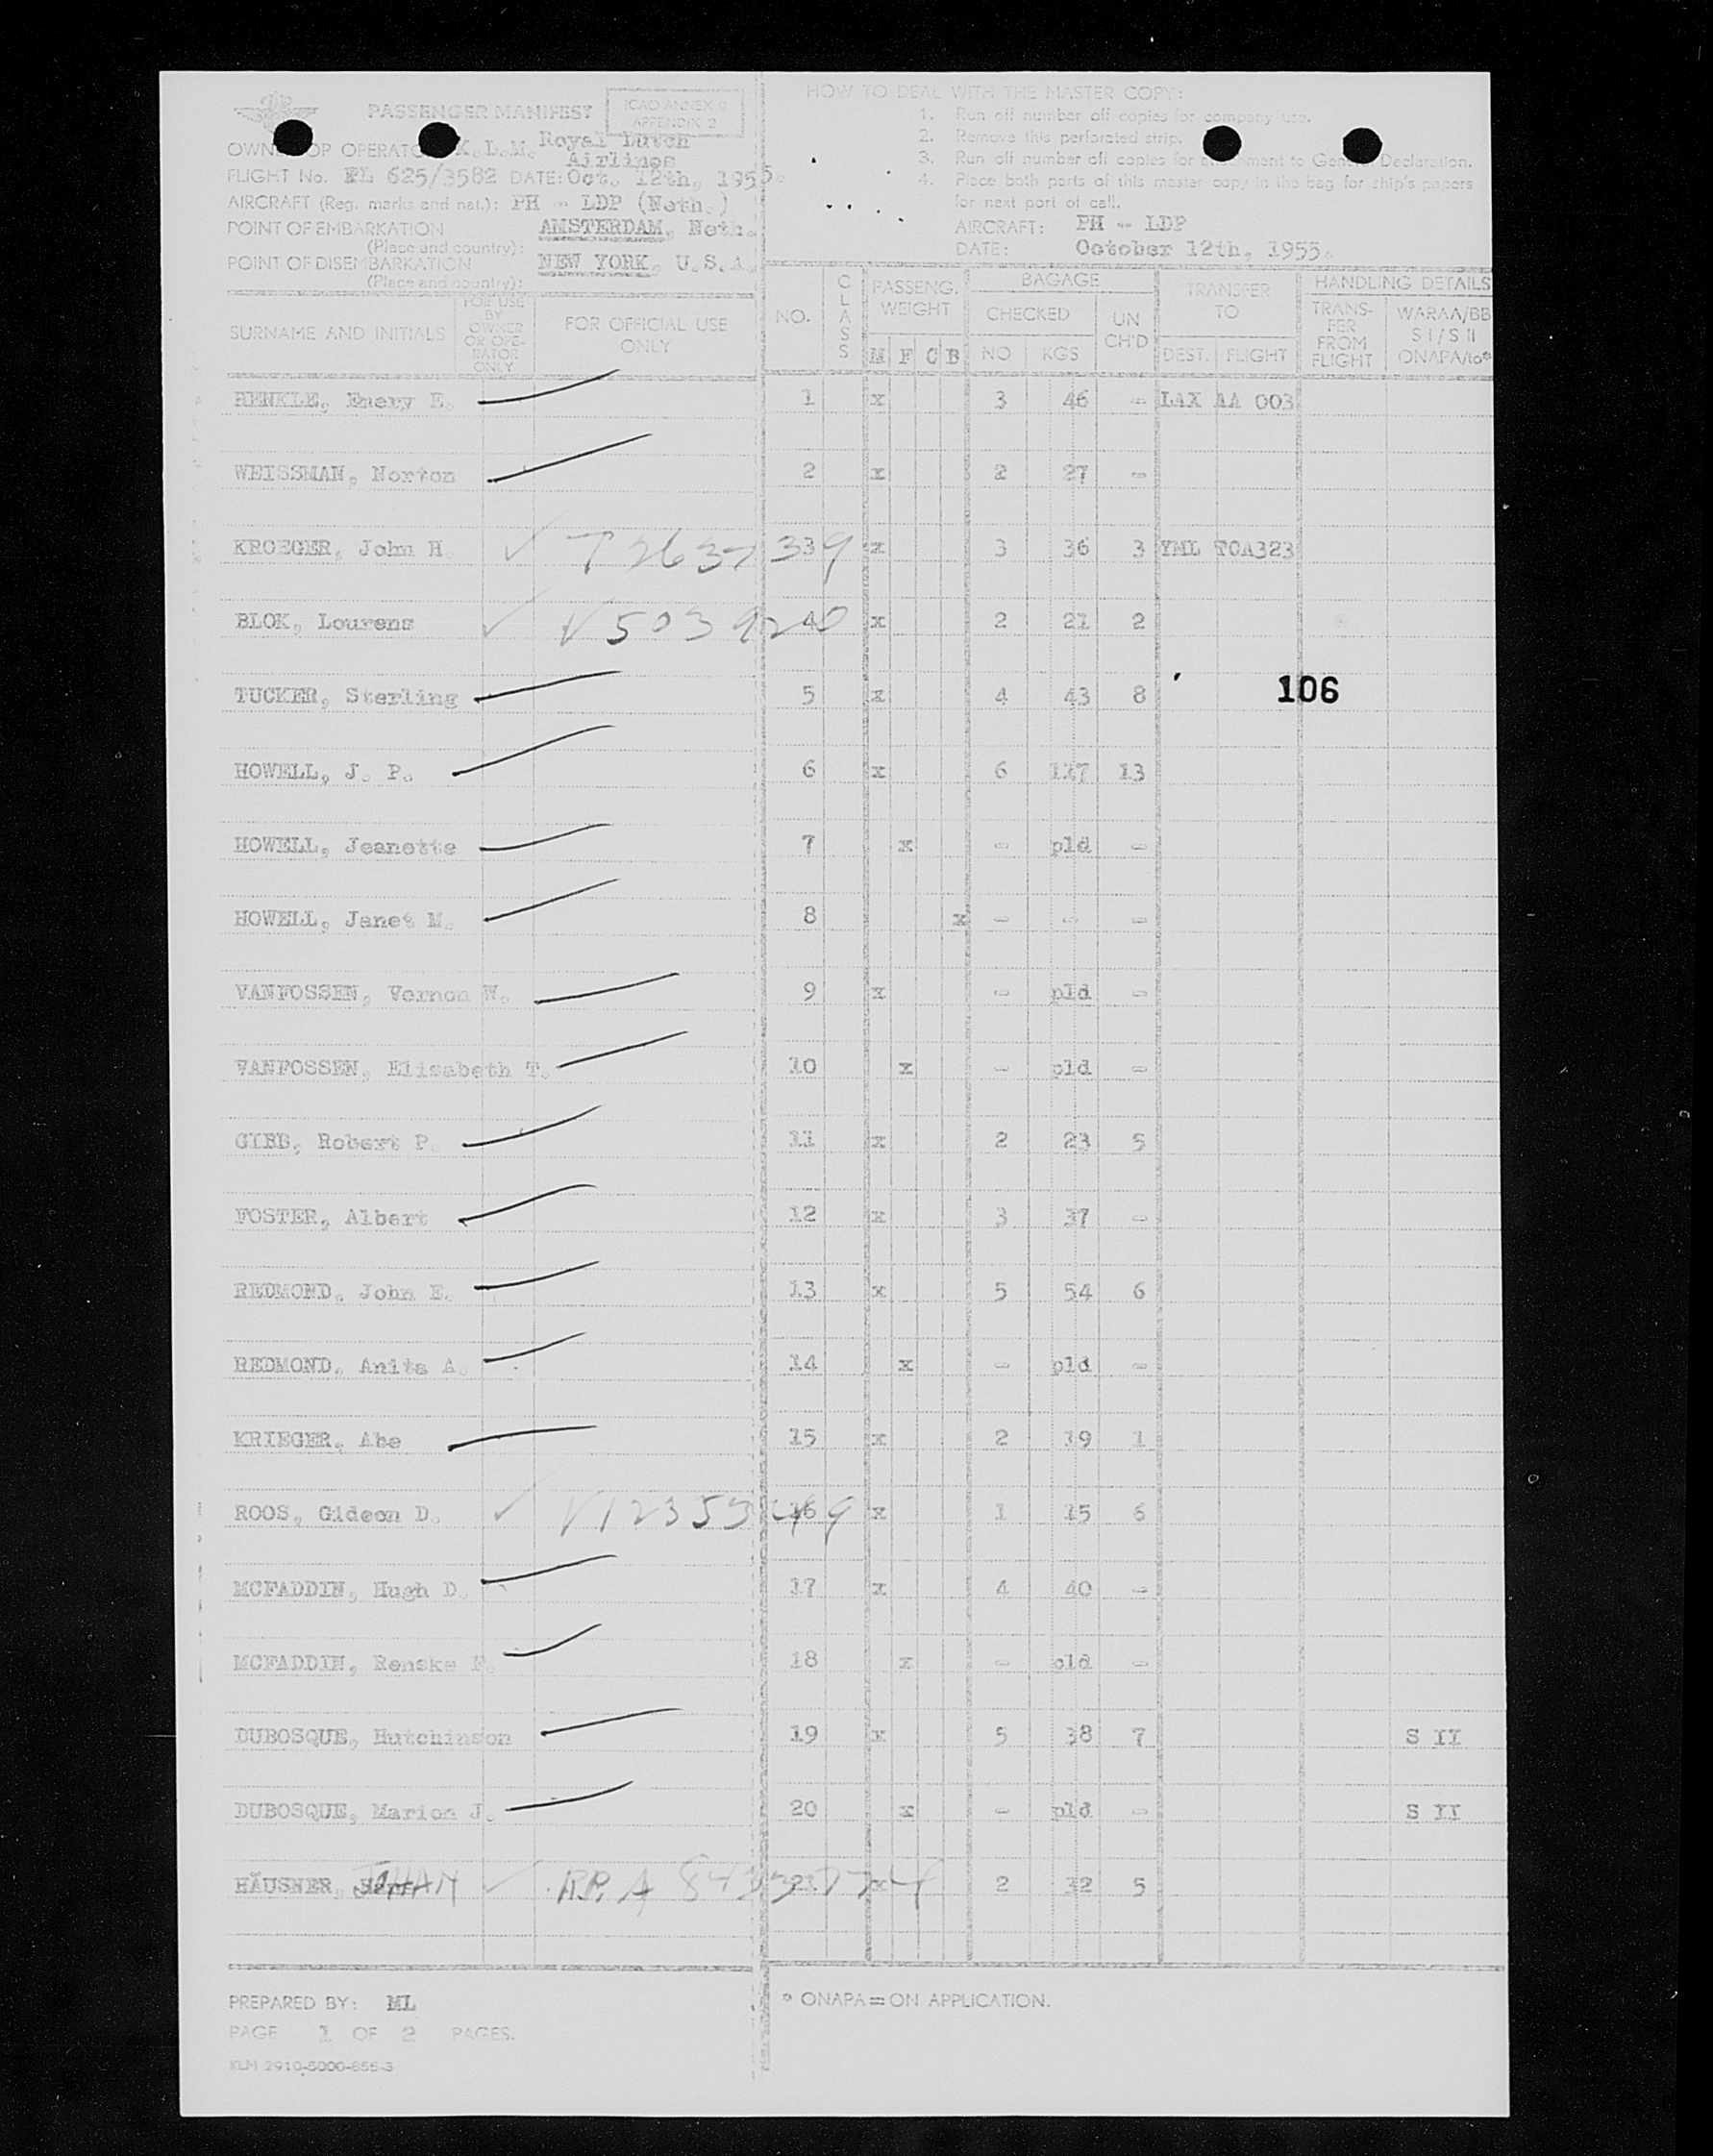 PASSENGER MANIFEST
ICAO ANNEX 9
APPENDIX 2
OWNER OR OPERATOR K.L.M. Royal Dutch
Airlines
FLIGHT No. KL 625/3582 DATE: Oct. 12th, 1955.
AIRCRAFT (Reg. marks and nat.): PH - LDP (Neth.)
POINT OF EMBARKATION
(Place and country): AMSTERDAM, Neth.
POINT OF DISEMBARKATION
(Place and country): NEW YORK, U.S.A.
HOW TO DEAL WITH THE MASTER COPY:
1. Run off number off copies for company use.
2. Remove this perforated strip.
3. Run off number off copies for attachment to General Declaration.
4. Place both parts of this master copy in the bag for ship's papers
for next port of call.
AIRCRAFT: PH - LDP
DATE: October 12th, 1955.
SURNAME AND INITIALS
FOR USE BY OWNER OR OPE-RATOR ONLY
FOR OFFICIAL USE ONLY
NO.
CLASS
PASSENG. WEIGHT
M F C B
BAGAGE
CHECKED
NO KGS
UN CH'D
TRANSFER TO
DEST. FLIGHT
HANDLING DETAILS
TRANS-FER FROM FLIGHT
WARAA/BB S I / S II ONAPA/to*
HENKLE, Emery E. 1 x 3 46 - LAX AA 003
WEISSMAN, Norton 2 x 2 27 -
KROEGER, John H. T2637339 3 x 3 36 3 YML TCA323
BLOK, Lourens V503920 4 x 2 21 2
TUCKER, Sterling 5 x 4 43 8
106
HOWELL, J. P. 6 x 6 117 13
HOWELL, Jeanette 7 x - pld -
HOWELL, Janet M. 8 x - - -
VANFOSSEN, Vernon W. 9 x - pld -
VANFOSSEN, Elisabeth T. 10 x - pld -
GIEB, Robert P. 11 x 2 23 5
FOSTER, Albert 12 x 3 37 -
REDMOND, John E. 13 x 5 54 6
REDMOND, Anita A. 14 x - pld -
KRIEGER, Abe 15 x 2 19 1
ROOS, Gideon D. 16 x 1 15 6
MCFADDIN, Hugh D. 17 x 4 40 -
MCFADDIN, Renske F. 18 x - pld -
DUBOSQUE, Hutchinson 19 x 5 38 7 S II
DUBOSQUE, Marion J. 20 x - pld - S II
HÄUSNER, JOHAN R.P. A 21 x 2 32 5
PREPARED BY: ML
PAGE 1 OF 2 PAGES.
KLM 2910-5000-655-3
* ONAPA = ON APPLICATION.